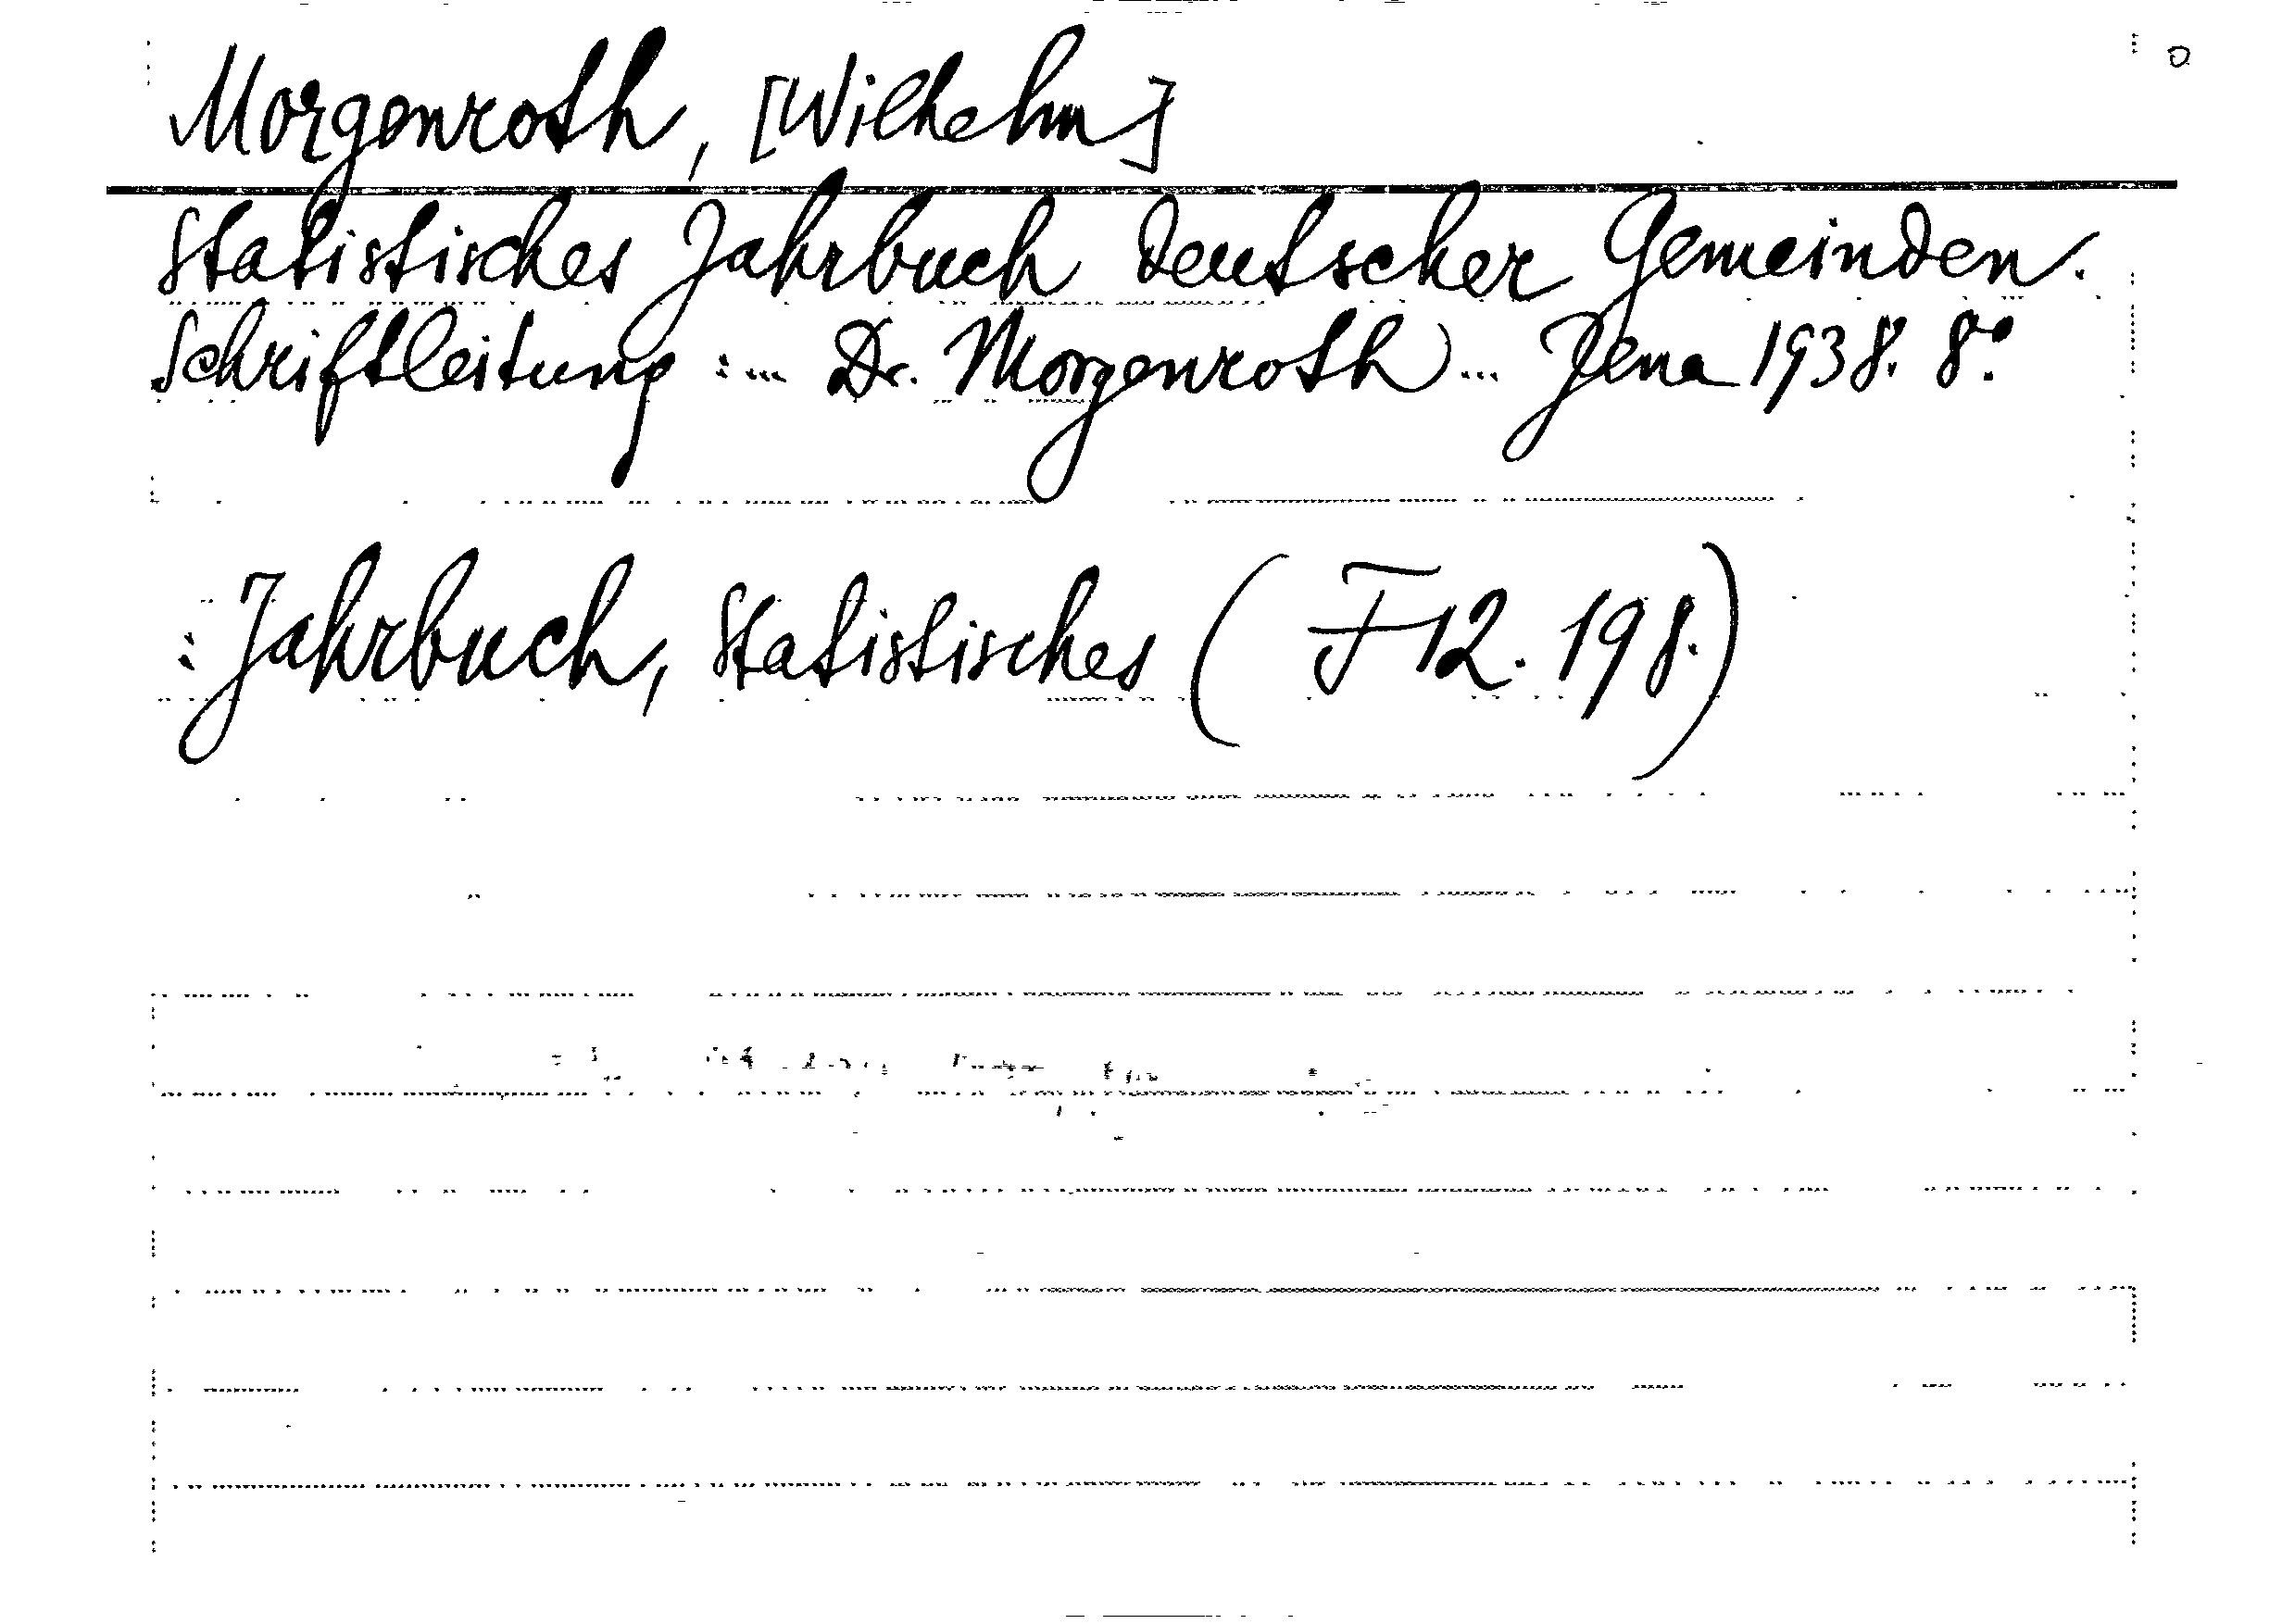 Morgenroth, [Wilhelm]
Statistisches Jahrbuch deutscher Gemeinden.
Schriftleitung: ... Dr. Morgenroth ... Jena 1938. 8°.
: Jahrbuch, Statistisches (F 12. 198.)